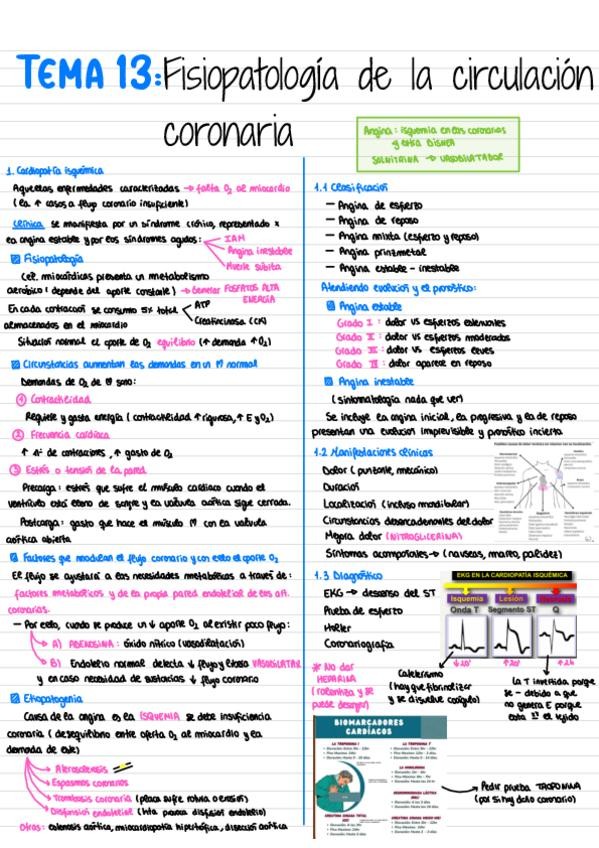 TEMA 13: Fisiopatología de la circulación
coronaria
Angina: isquemia en las coronarias
SOLNITRINA → VASODILATADOR
1. Cardiopatía isquémica
Aquellas enfermedades caracterizadas → falta O2 al miocardio
(la ↑ casos a flujo coronario insuficiente)
Clínica se manifiesta por un síndrome crónico, representado x
la angina estable y por los síndromes agudos:
IAM
Angina inestable
Muerte súbita
Fisiopatología
Cél. miocárdicas presenta un metabolismo
aeróbico (depende del aporte constante) → Generar FOSFATOS ALTA
ENERGÍA
En cada contracción se consume 5% total
almacenados en el miocardio
ATP
Creatincinasa (CK)
Situación normal el aporte de O2 equilibrio (↑ demanda ↑ O2)
Circunstancias aumentan las demandas en un M normal
Demandas de O2 de M son:
1 Contractilidad
Requiere y gasta energía (contractilidad ↑ rigurosa, ↑ E y O2)
2 Frecuencia cardíaca
↑ nº de contracciones, ↑ gasto de O2
3 Estrés o tensión de la pared
Precarga: estrés que sufre el músculo cardíaco cuando el
ventrículo está lleno de sangre y la válvula aórtica sigue cerrada.
Postcarga: gasto que hace el músculo M con la válvula
aórtica abierta
Factores que modulan el flujo coronario y con esto el aporte O2
El flujo se ajustará a las necesidades metabólicas a través de:
factores metabólicos y de la propia pared endotelial de las art.
coronarias.
— Por ello, cuando se produce un ↓ aporte O2 al existir poco flujo:
A) ADENOSINA: óxido nítrico (vasodilatación)
B) Endotelio normal detecta ↓ flujo y libera VASODILATAR
y en caso necesidad de sustancias ↓ flujo coronario
Etiopatogenia
Causa de la angina es la ISQUEMIA se debe insuficiencia
coronaria (desequilibrio entre oferta O2 al miocardio y la
demanda de este)
Aterosclerosis
Espasmos coronarios
Trombosis coronaria (placa sufre rotura o erosión)
Disfunción endotelial
Otras: estenosis aórtica, miocardiopatía hipertrófica, disección aórtica
1.1 Clasificación
— Angina de esfuerzo
— Angina de reposo
— Angina mixta (esfuerzo y reposo)
— Angina prinzmetal
— Angina estable - inestable
Atendiendo evolución y el pronóstico:
Angina estable
Grado I : dolor vs esfuerzos extenuantes
Grado II : dolor vs esfuerzos moderados
Grado III : dolor vs esfuerzos leves
Grado IV : dolor aparece en reposo
Angina inestable
(sintomatología nada que ver)
Se incluye la angina inicial, la progresiva y la de reposo
presentan una evolución imprevisible y pronóstico incierto
1.2 Manifestaciones clínicas
Dolor (punzante, mecánico)
Duración
Localización (incluso mandibular)
Circunstancias desencadenantes del dolor
Mejora dolor (NITROGLICERINA)
Síntomas acompañantes → (náuseas, mareo, palidez)
1.3 Diagnóstico
EKG → descenso del ST
Prueba de esfuerzo
Holter
Coronariografía
EKG EN LA CARDIOPATÍA ISQUÉMICA
Isquemia Lesión
Onda T Segmento ST Q
* No dar
HEPARINA
(ralentiza y se
puede desangrar)
Cateterismo
(hay que fibrinolizar
y se disuelve coágulo)
La T invertida porque
se - debido a que
no genera E porque
BIOMARCADORES
CARDÍACOS
LA TROPONINA I
LA TROPONINA T
LA MIOGLOBINA
→ Pedir prueba TROPONINA
(por si hay daño coronario)